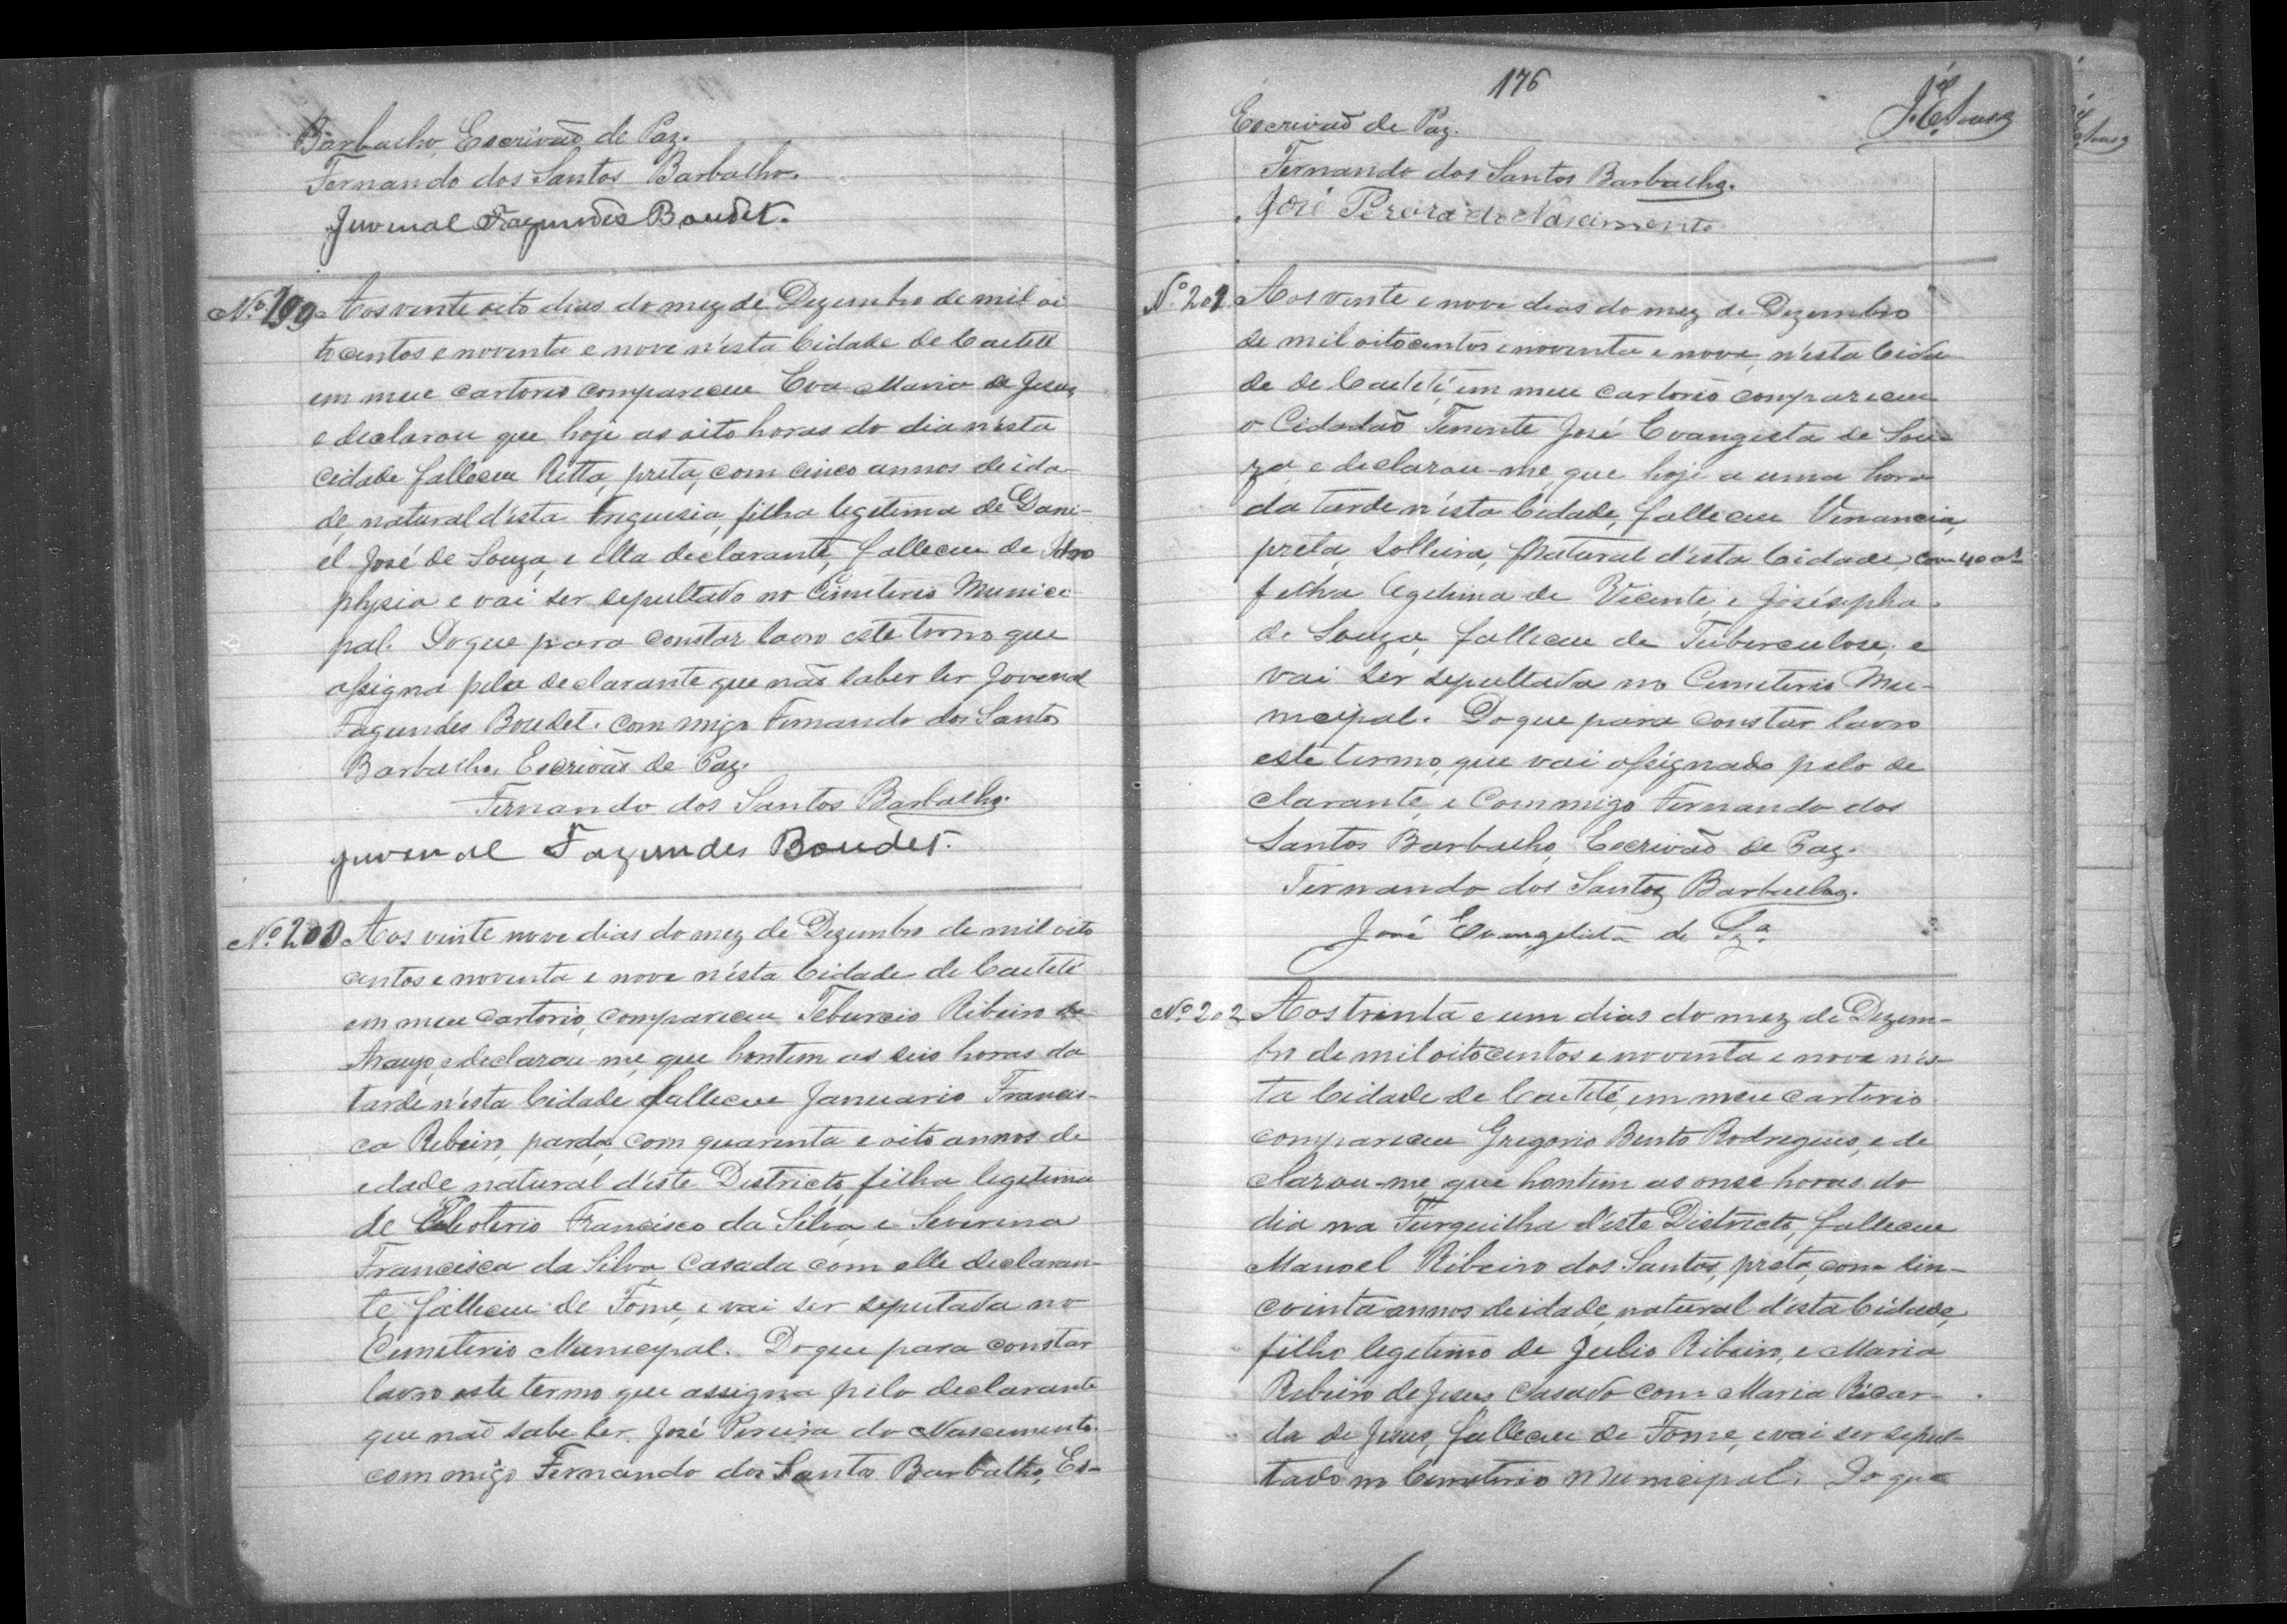 Barbalho, Escrivaõ de Paz.
Fernando dos Santos Barbalho.
Juvenal Fagundes Boudet.
Nº 199 Aos vinte oito dias do mez de Dezembro de mil oi
tocentos e noventa e nove n'esta Cidade de Caeteté
em meu cartorio compareceu Eva Maria de Jesus
e declarou que hoje as oito horas do dia n'esta
cidade falleceu Ritta, preta, com cinco annos de ida-
de, natural d'esta freguesia, filha legitima de Dani-
el José de Souza, e ella declarante, falleceu de
physia e vai ser sepultado no Cimiterio Munici
pal. Do que para constar lavro este termo que
assigna pela declarante que naõ saber ler Jovenal
Fagundes Boudet. com migo Fernando dos Santos
Barbalho, Escrivaõ de Paz.
Fernando dos Santos Barbalho.
Juvenal Fagundes Boudet.
Nº 200 Aos vinte nove dias do mez de Dezembro de mil oito
centos e noventa e nove n'esta Cidade de Caeteté
em meu cartorio, compareceu Teburcio Ribeiro de
Araujo, e declarou-me, que hontem as seis horas da
tarde n'esta Cidade falleceu Januario Francis-
ca Ribeiro, parda, com quarenta e oito annos de
edade natural d'este Districto, filha legitima
de Francisco da Silva, e Severina
Francisca da Silva, casada com elle declaran-
te, falleceu de Fome, e vai ser seputada no
Cemeterio Municypal. Do que para constar
lavro este termo que assigna pelo declarante
que naõ sabe ler José Pereira do Nascimento.
com migo Fernando dos Santos Barbalho, Es-
176
J. E. Souza
Escrivaõ de Paz.
Fernando dos Santos Barbalho.
José Pereira do Nascimento
Nº 201 Aos vente e nove dias do mez de Dezembro
de mil oitocentos e noventa e nove, n'esta Cida-
de de Caeteté, em meu cartorio compareceu
o Cidadaõ Tenente José Evangista de Sou-
za, e declarou-me, que hoje a uma hora
da tarde n'esta Cidade, falleceu Venancia,
preta, solteira, natural d'esta Cidade, com 40 as
filha legitima de Vicente, e Josésepha
de Souza, falleceu de Tuberculose, e
vai ser sepultada no Cemeterio Mu-
nicipal. Do que para constar lavro
este termo, que vai assignado pelo de
clarante, e Commigo Fernando dos
Santos Barbalho, Escrivaõ de Paz.
Fernando dos Santos Barbalho.
José Evangelista de Sza
Nº 202 Aos trinta e um dias do mez de Dezem-
bro de mil oitocentos e noventa e nove n'es-
ta Cidade de Caeteté, em meu cartorio
compareceu Gregorio Bento Rodrigues, e de
clarou-me, que hontem as onse horas do
dia na Furquilha d'este Districto, falleceu
Manoel Ribeiro dos Santos, preto, com sin-
cointa annos de idade, natural d'esta Cidade,
filho legetimo de Julio Ribeiro, e Maria
Ribeiro de Jesus, casado com Maria Ricar-
da de Jesus, falleceu de Fome, e vai ser sepul-
tado no Cemeterio Municipal. Do que